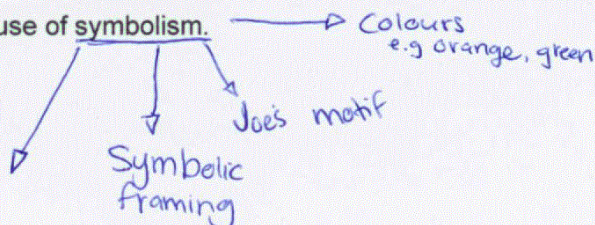 use of symbolism.
Colours
e.g orange, green
Joe's motif
Symbolic
framing